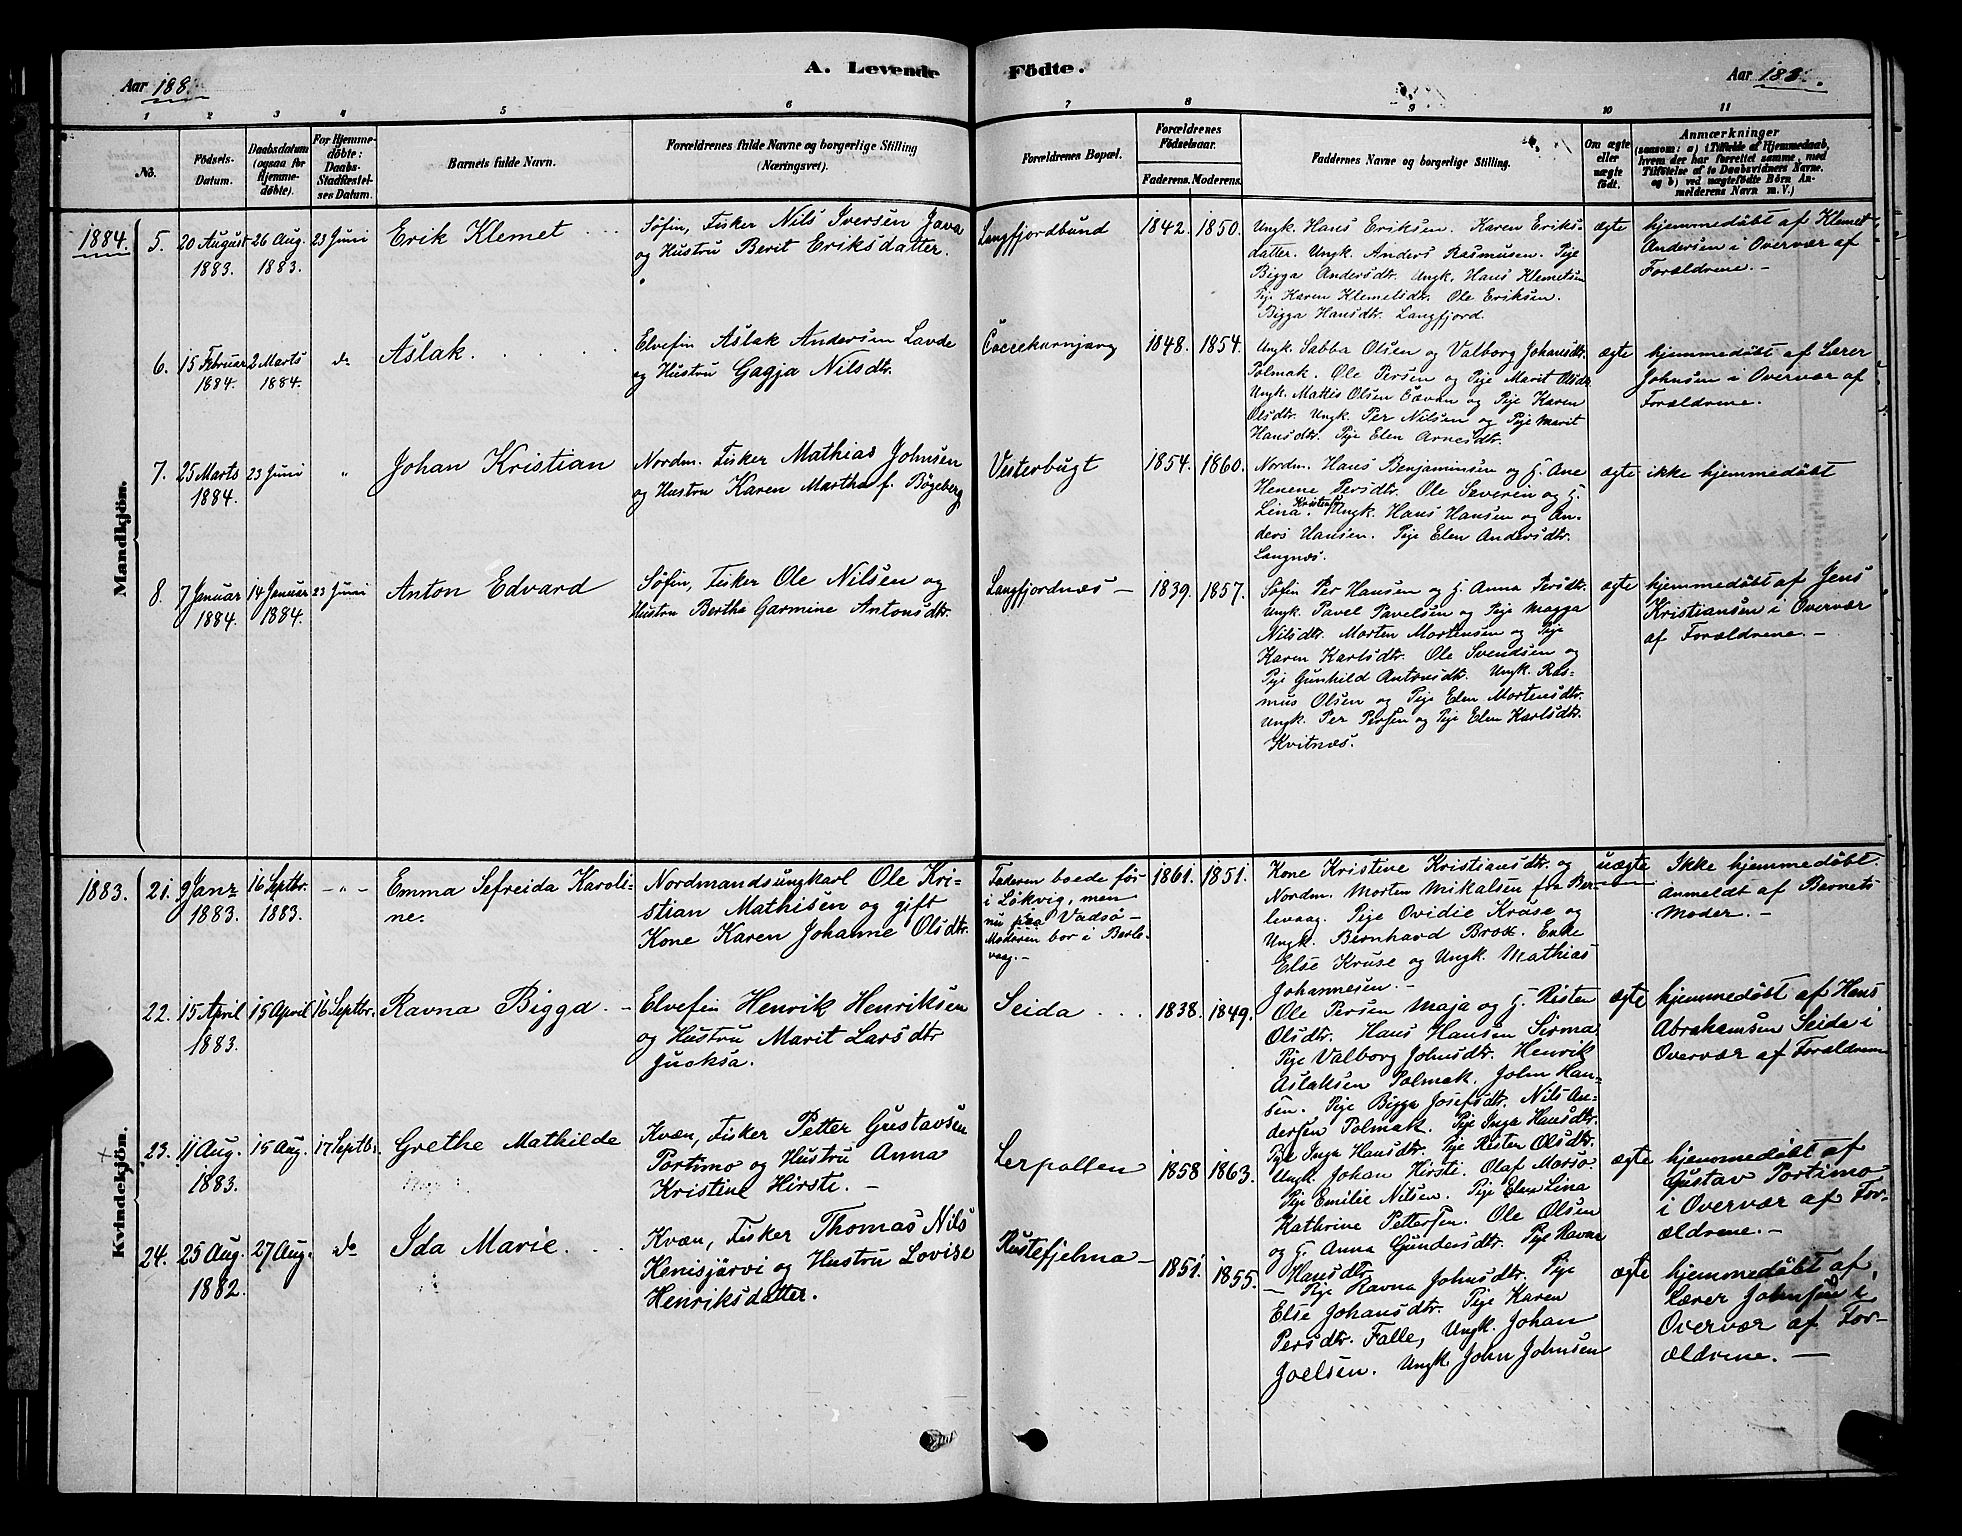 A. Levende Födte.
Aar 188
Aar 188 .
1 2 3 4 5 6 7 8 9 10 11
No.
Födsels-
Datum.
Daabsdatum
(ogsaa for
Hjemme-
döbte).
For Hjemme-
döbte:
Daabs-
Stadfæstel-
ses Datum.
Barnets fulde Navn.
Forældrenes fulde Navne og borgerlige Stilling
(Næringsvei).
Forældrenes Bopæl.
Forældrenes
Födselsaar.
Faderens. Moderens.
Faddernes Navne og borgerlige Stilling.
Om ægte
eller
uægte
födt.
Anmærkninger
(saasom: a) i Tilfælde af Hjemmedaab,
hvem der har forrettet samme, med
Tilföielse af to Daabsvidners Navne,
og b) ved uægtefödte Börn An-
melderens Navn m. V.)
Mandkjön.
1884.
5.
20 August
1883.
26 Aug.
1883.
23 Juni
Erik Klemet
Søfin, Fisker Nils Iversen Java
og Hustru Berit Eriksdatter.
Langfjordbund
1842. 1850.
Ungk. Hans Eriksen. Karen Eriks-
datter. Ungk. Anders Rasmusen. Pige
Bigga Andersdt. Ungk. Hans Klemetsen
Pige Karen Klemetsdt. Ole Eriksen.
Bigga Hansdtr. Langfjord.
ægte
hjemmedøbt af Klemet
Andersen i Overvær af
Forældrene. -
6.
15 Februar
1884.
2 Marts
1884.
do
Aslak.
Elvefin Aslak Andersen Lavde
og Hustru Gagja Nilsdtr.
1848. 1854.
Ungk. Sabba Olsen og Valborg Johansdtr.
Polmak. Ole Persen og Pige Marit Olsdtr.
Ungk. Mattis Olsen og Pige Karen
Olsdtr. Ungk. Per Nilsen og Pige Marit
Hansdtr. Pige Elen Arnesdtr.
ægte
hjemmedøbt af Lærer
Johnsen i Overvær af
Forældrene.
7.
25 Marts
1884.
23 Juni
"
Johan Kristian
Nordm. Fisker Mathias Johnsen
og Hustru Karen Martha f. Bøgeberg
Vesterbugt
1854. 1860.
Nordm. Hans Benjaminsen og G. Ane
Henene Persdtr. Ole Severin og G.
Lina Kristensen Ungk. Hans Hansen og An-
ders Hansen. Pige Elen Andersdtr.
Langnæs.
ægte
ikke hjemmedøbt
8.
7 Januar
1884.
14 Januar
1884.
23 Juni
Anton Edvard
Søfin, Fisker Ole Nilsen og
Hustru Berthe Garmine Antonsdtr.
Langfjordnæs -
1839. 1857.
Søfin Per Hansen og G. Anna Persdtr.
Ungk. Pavel Pavelsen og Pige Magga
Nilsdtr. Morten Mortensen og Pige
Karen Karlsdtr. Ole Svendsen og
Pige Gunhild Antonsdtr. Ungk. Ras-
mus Olsen og Pige Elen Mortensdtr.
Ungk. Per Persen og Pige Elen Karlsdtr.
Kvitnæs.
ægte
hjemmedøbt af Jens
Kristiansen i Overvær
af Forældrene. -
Kvindekjön.
1883.
21.
9 Janr
1883.
16 Septbr.
1883.
- " -
Emma Sefreida Karoli-
ne.
Nordmandsungkarl Ole Kri-
stian Mathisen og gift
Kone Karen Johanne Olsdtr.
Faderen boede før
i Løkvig, men
nu paa Vadsø -
Moderen bor i Berle-
vaag. -
1861. 1851.
Kone Kristine Kristiansdtr. og
Nordm. Morten Mikalsen fra Ber-
levaag. Pige Ovidie Kruse og
Ungk. Bernhard Brox. Enke
Else Kruse og Ungk. Mathias
Johannesen. -
uægte
Ikke hjemmedøbt.
Anmeldt af Barnets
Moder. -
22.
15 April
1883.
15 April
16 Septbr.
Ravna Bigga -
Elvefin Henrik Henriksen
og Hustru Marit Larsdtr
Juoksa.
Seida
1838. 1849.
Ole Persen Maja og G. Risten
Olsdtr. Hans Hansen Sirma
Pige Valborg Johnsdtr. Henrik
Aslaksen Polmak. John Han-
sen. Pige Bigga Josefsdtr. Nils An-
dersen Polmak. Pige Inga Hansdtr.
Pige Inga Hansdtr. Pige Risten Olsdtr.
ægte
hjemmedøbt af Hans
Abrahamsen Seida i
Overvær af Forældrene
23.
11 Aug.
1883.
15 Aug.
17 Septbr.
Grethe Mathilde
Kvæn, Fisker Petter Gustavsen
Portimo og Hustru Anna
Kristine Hirsti. -
Lerpollen
1858 1863.
Ungk. Johan Hirsti. Olaf Marsø
Pige Emilie Nilsen. Pige Elen Lina
Kathrine Pettersen. Ole Olsen
og G. Anna Gundersdtr. Pige Ravna
Hansdtr.
ægte
hjemmedøbt af
Gustav Portimo
i Overvær af For-
ældrene. -
24.
25 Aug.
1882.
27 Aug.
do
Ida Marie.
Kvæn, Fisker Thomas Nils
Kenisjärvi og Hustru Lovise
Henriksdatter.
Rustefjelma -
1851. 1855.
- Pige Ravna Johnsdtr. Pige
Else Johansdtr. Pige Karen
Persdtr. Falle, Ungk. Johan
Joelsen. Ungk John Johnsen
ægte
hjemmedøbt af
Lærer Johnsen i
Overvær af For-
ældrene. -